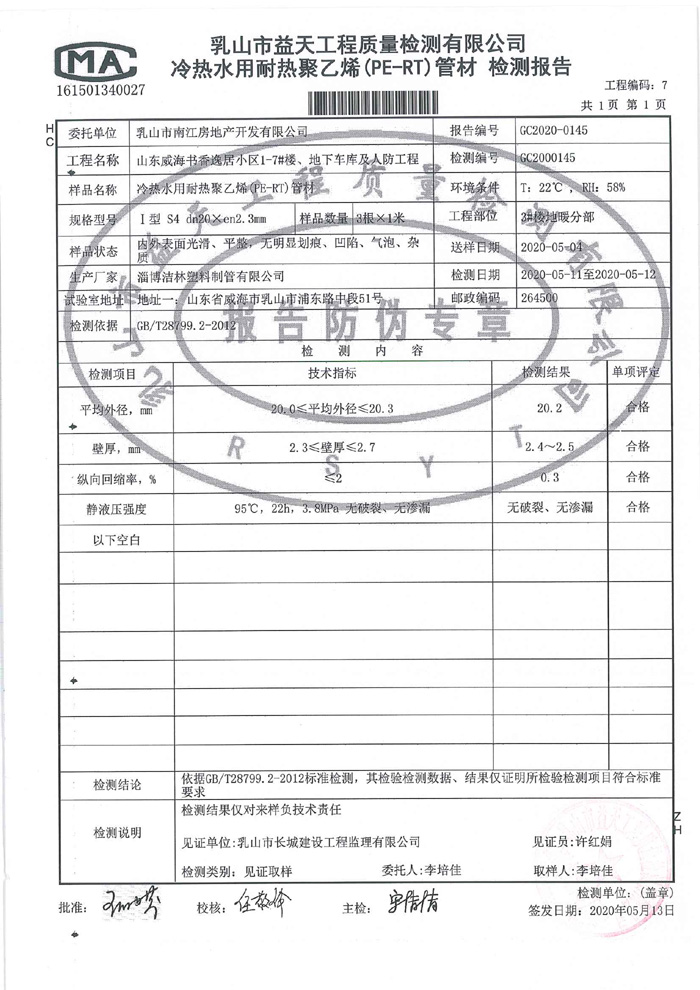 CMA
161501340027
乳山市益天工程质量检测有限公司
冷热水用耐热聚乙烯(PE-RT)管材 检测报告
工程编码: 7
共 1页 第 1页
HC
委托单位 乳山市南江房地产开发有限公司 报告编号 GC2020-0145
工程名称 山东威海书香逸居小区1-7#楼、地下车库及人防工程 检测编号 GC2000145
样品名称 冷热水用耐热聚乙烯(PE-RT)管材 环境条件 T: 22℃ , RH: 58%
规格型号 I型 S4 dn20×en2.3mm 样品数量 3根×1米 工程部位 3#楼地暖分部
样品状态 内外表面光滑、平整，无明显划痕、凹陷、气泡、杂质 送样日期 2020-05-04
生产厂家 淄博洁林塑料制管有限公司 检测日期 2020-05-11至2020-05-12
试验室地址 地址一: 山东省威海市乳山市浦东路中段51号 邮政编码 264500
检测依据 GB/T28799.2-2012
乳山市益天工程质量检测有限公司
报告防伪专章
RSYT
检 测 内 容
检测项目 技术指标 检测结果 单项评定
平均外径, mm 20.0≤平均外径≤20.3 20.2 合格
壁厚, mm 2.3≤壁厚≤2.7 2.4～2.5 合格
纵向回缩率, % ≤2 0.3 合格
静液压强度 95℃, 22h, 3.8MPa 无破裂、无渗漏 无破裂、无渗漏 合格
以下空白
检测结论 依据GB/T28799.2-2012标准检测，其检验检测数据、结果仅证明所检验检测项目符合标准要求
检测说明 检测结果仅对来样负技术责任
见证单位:乳山市长城建设工程监理有限公司 见证员:许红娟
检测类别: 见证取样 委托人:李培佳 取样人:李培佳
ZH
检测单位: (盖章)
批准: 校核: 主检: 签发日期: 2020年05月13日